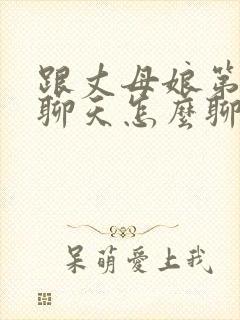 跟丈母娘第
聊天怎麼聊
呆萌愛上我